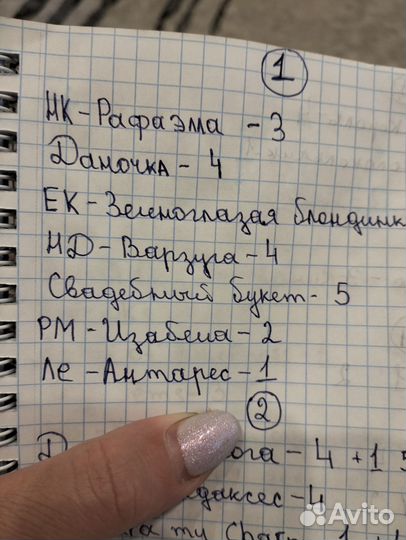 1
НК-Рафаэма - 3
Дамочка - 4
ЕК-Зеленоглазая блондинк
НД-Варзуга-4
Свадебный букет- 5
РМ-Изабела-2
Ле-Антарес-1
2
ога-4+1
даксес-4
Avito